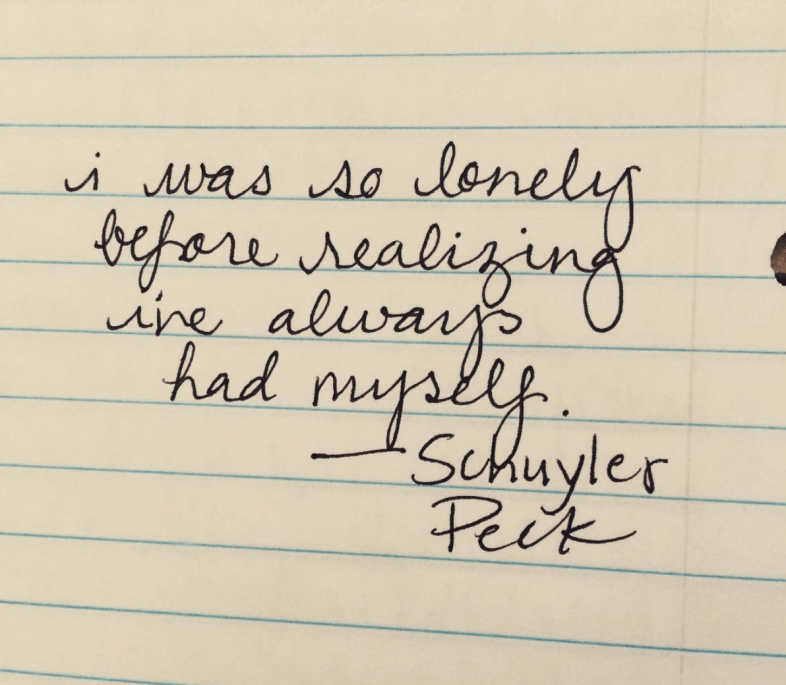 i was so lonely
before realizing
i've always
had myself.
— Schuyler
Peck